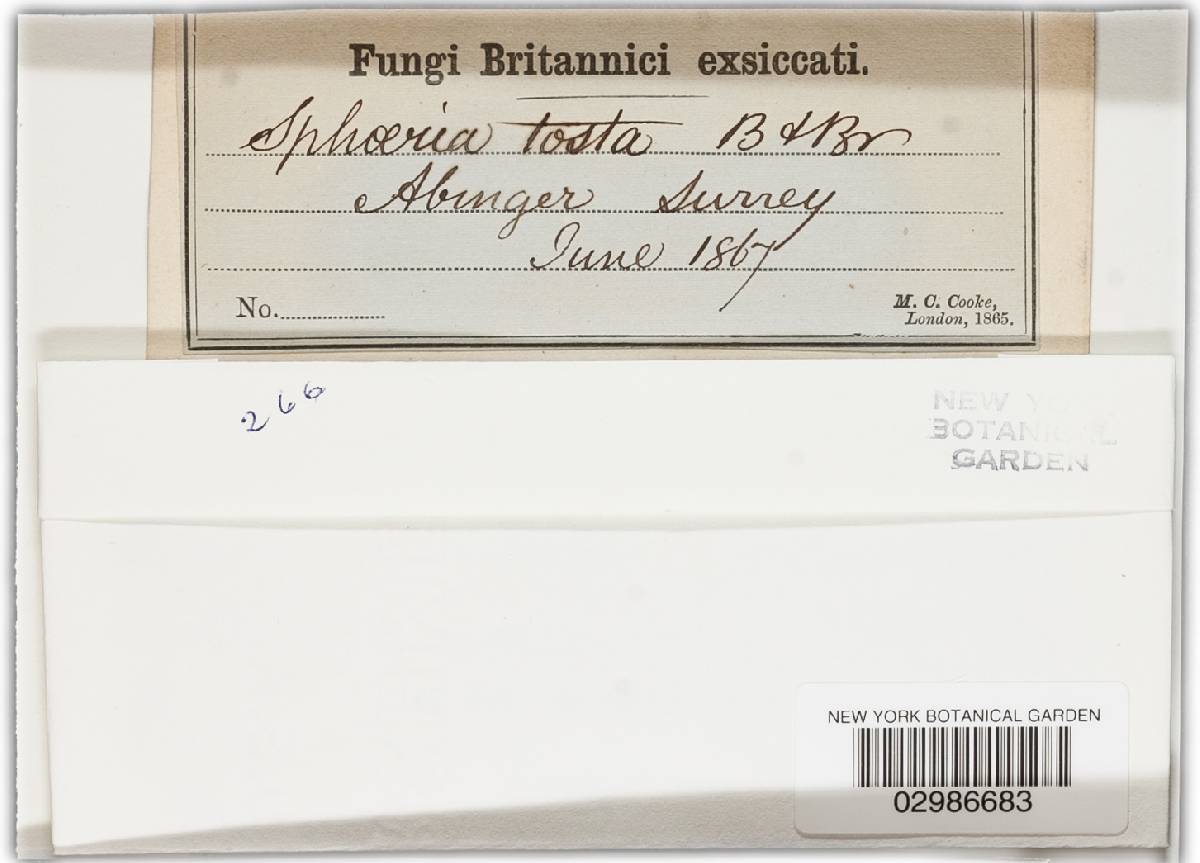 Fungi Britannici exsiccati.
Sphæria tosta B & Br
Abinger Surrey
June 1867
No.
M. C. Cooke,
London, 1865.
266
NEW YORK
BOTANICAL
GARDEN
NEW YORK BOTANICAL GARDEN
02986683